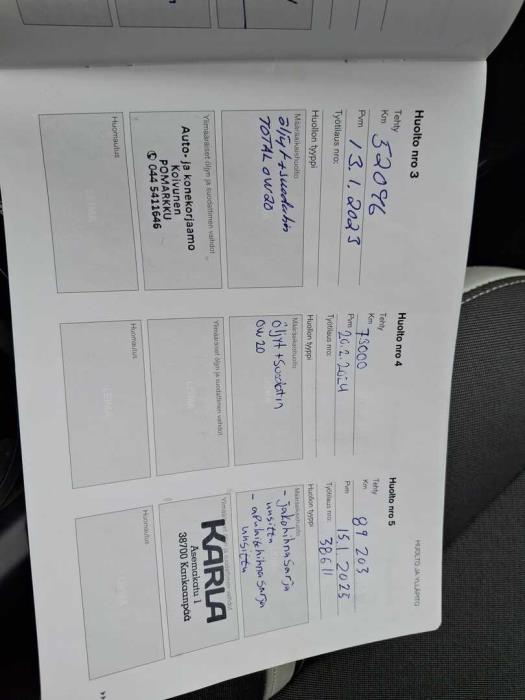 HUOLTO JA YLLÄPITO
Huolto nro 3
Tehty
Km 52096
Pvm 13.1.2023
Työtilaus nro:
Huollon tyyppi
Määräaikaishuolto
öljyt + suodatin
TOTAL 0W20
Ylimääräiset öljyn ja suodattimen vaihdot
Auto- ja konekorjaamo
Koivunen
POMARKKU
✆ 044 5411646
Huomautus
Huolto nro 4
Tehty
Km 73000
Pvm 20.2.2024
Työtilaus nro:
Huollon tyyppi
Määräaikaishuolto
öljyt + suodatin
0W20
Ylimääräiset öljyn ja suodattimen vaihdot
Huomautus
Huolto nro 5
Tehty
Km 89 203
Pvm 15.1.2025
Työtilaus nro: 38611
Huollon tyyppi
Määräaikaishuolto
- jakohihnasarja
uusittu
- apulaitehihnasarja
uusittu
KARLA
Asemakatu 1
38700 Kankaanpää
Huomautus